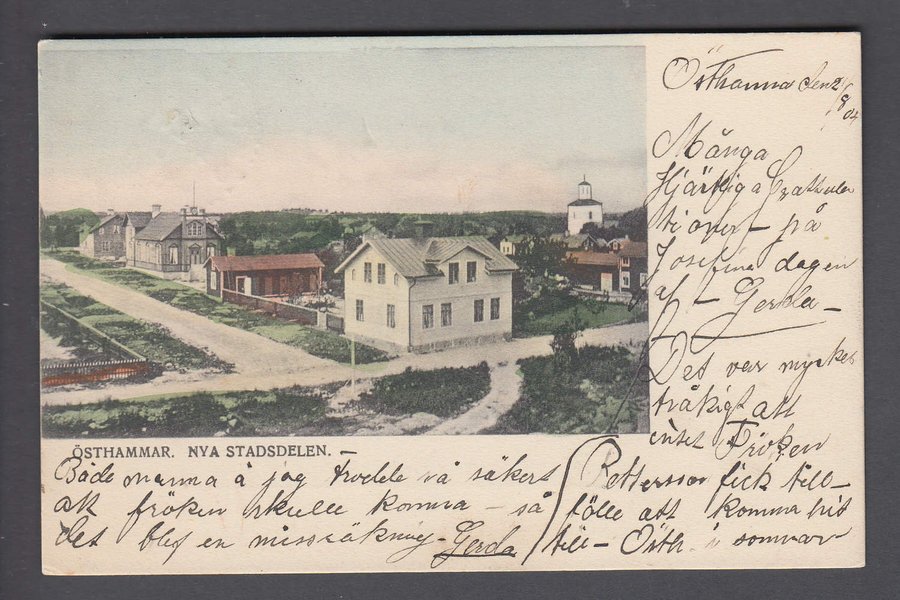 Östhamma den 2/8 04
Många
Hjärtliga Gratula
tioner på
Josefina dagen
af – Gerda –
Det var mycket
tråkigt att
inset Fröken
ÖSTHAMMAR. NYA STADSDELEN.
Petterson fick till–
fölle att komma hit
till – Östh. i sommar
Både mamma å jag trodde så säkert
att fröken skulle komma – så
det blef en missräkning – Gerda